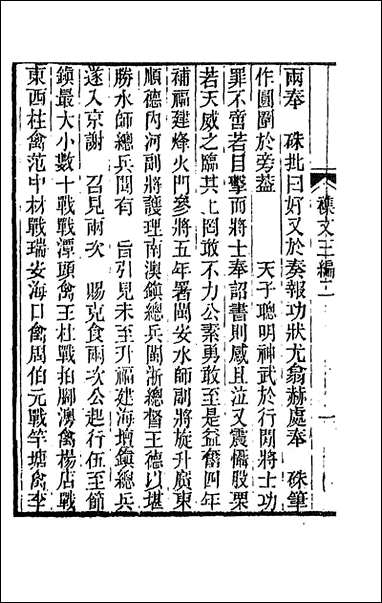 襍文三編二
兩奉　硃批曰好又於奏報功狀尤翁赫處奉　硃筆
作圓圍於旁葢　天子聰明神武於行間將士功
罪不啻若目擊而將士奉詔書則感且泣又震慴股栗
若天威之臨其上罔敢不力公素勇敢至是益奮四年
補福建烽火門參將五年署閩安水師副將旋升廣東
順德內河副將護理南澳鎮總兵閩浙總督王德以堪
勝水師總兵聞有　旨引見未至升福建海壇鎮總兵
遂入京謝　召見兩次　賜克食兩次公起行伍至節
鎮最大小數十戰戰潭頭禽王杜戰拍腳澳禽楊店戰
東西柱禽范中材戰瑞安海口禽周伯元戰竿塘禽李